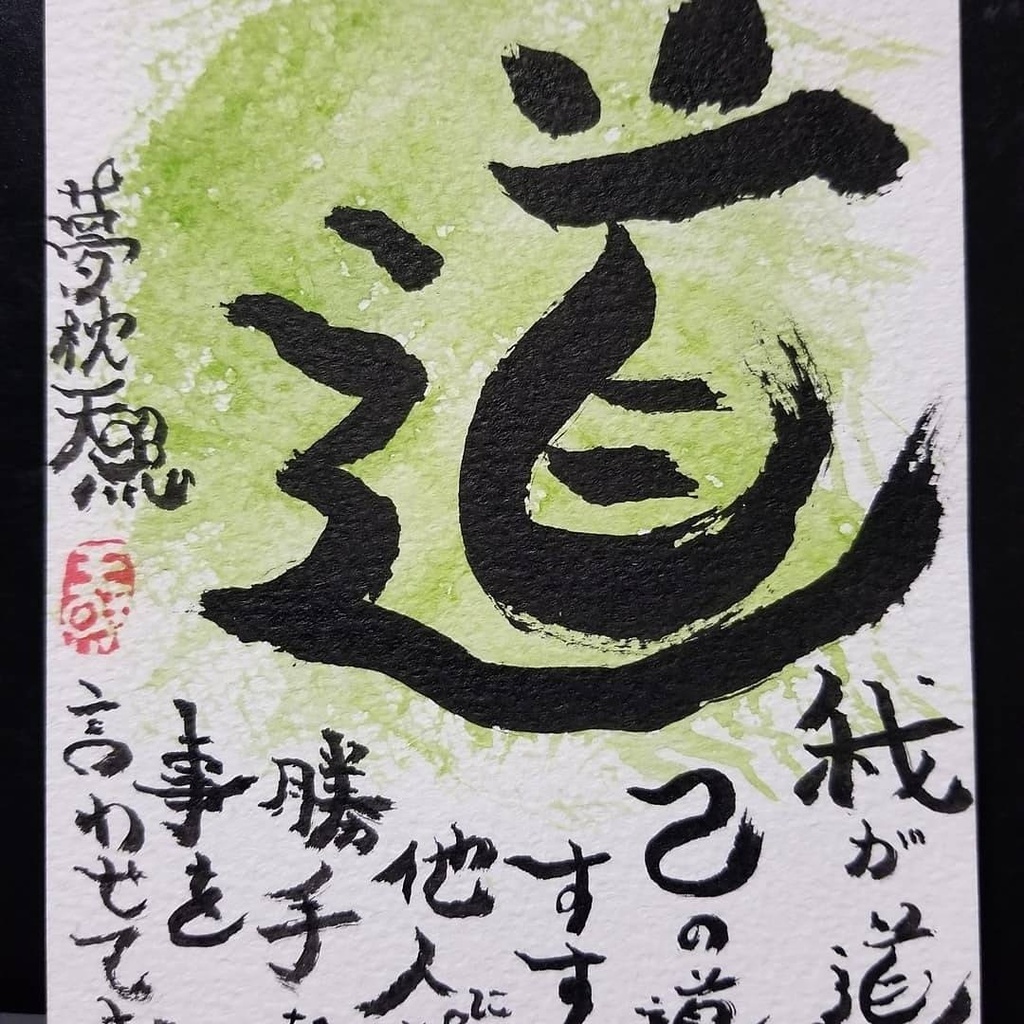 道
我が道
己の道
すす
他人に
勝手な
事を
言わせて
夢枕天